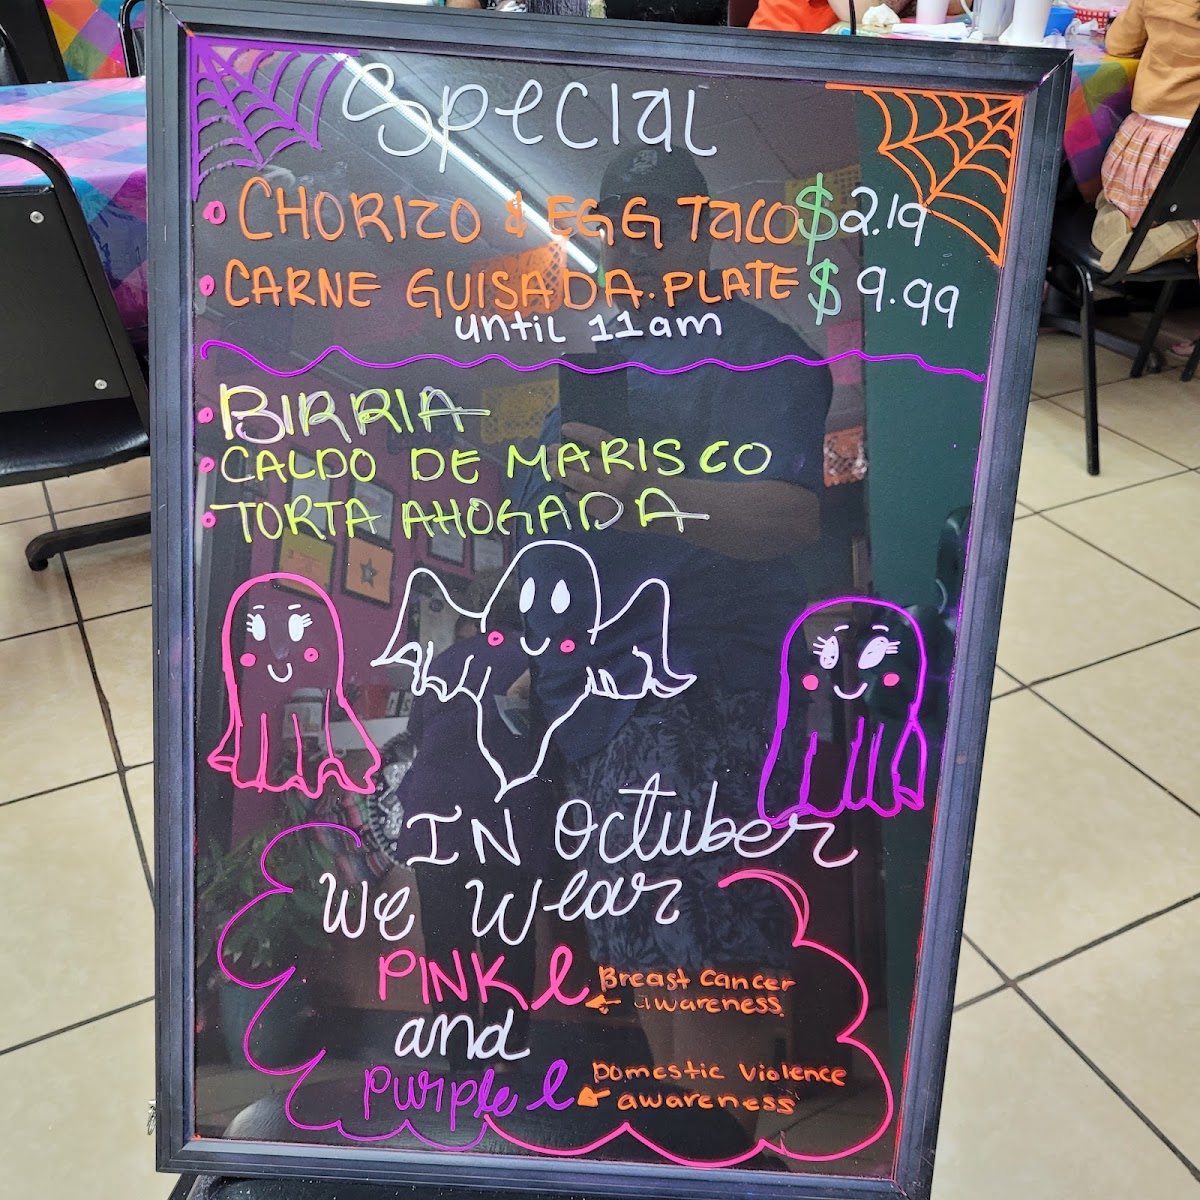 Special
CHORIZO & EGG TACO $2.19
CARNE GUISADA. PLATE $9.99
until 11am
BIRRIA
CALDO DE MARISCO
TORTA AHOGADA
IN Octuber
We wear
PINK Breast Cancer
awareness
and
Purple Domestic Violence
awareness